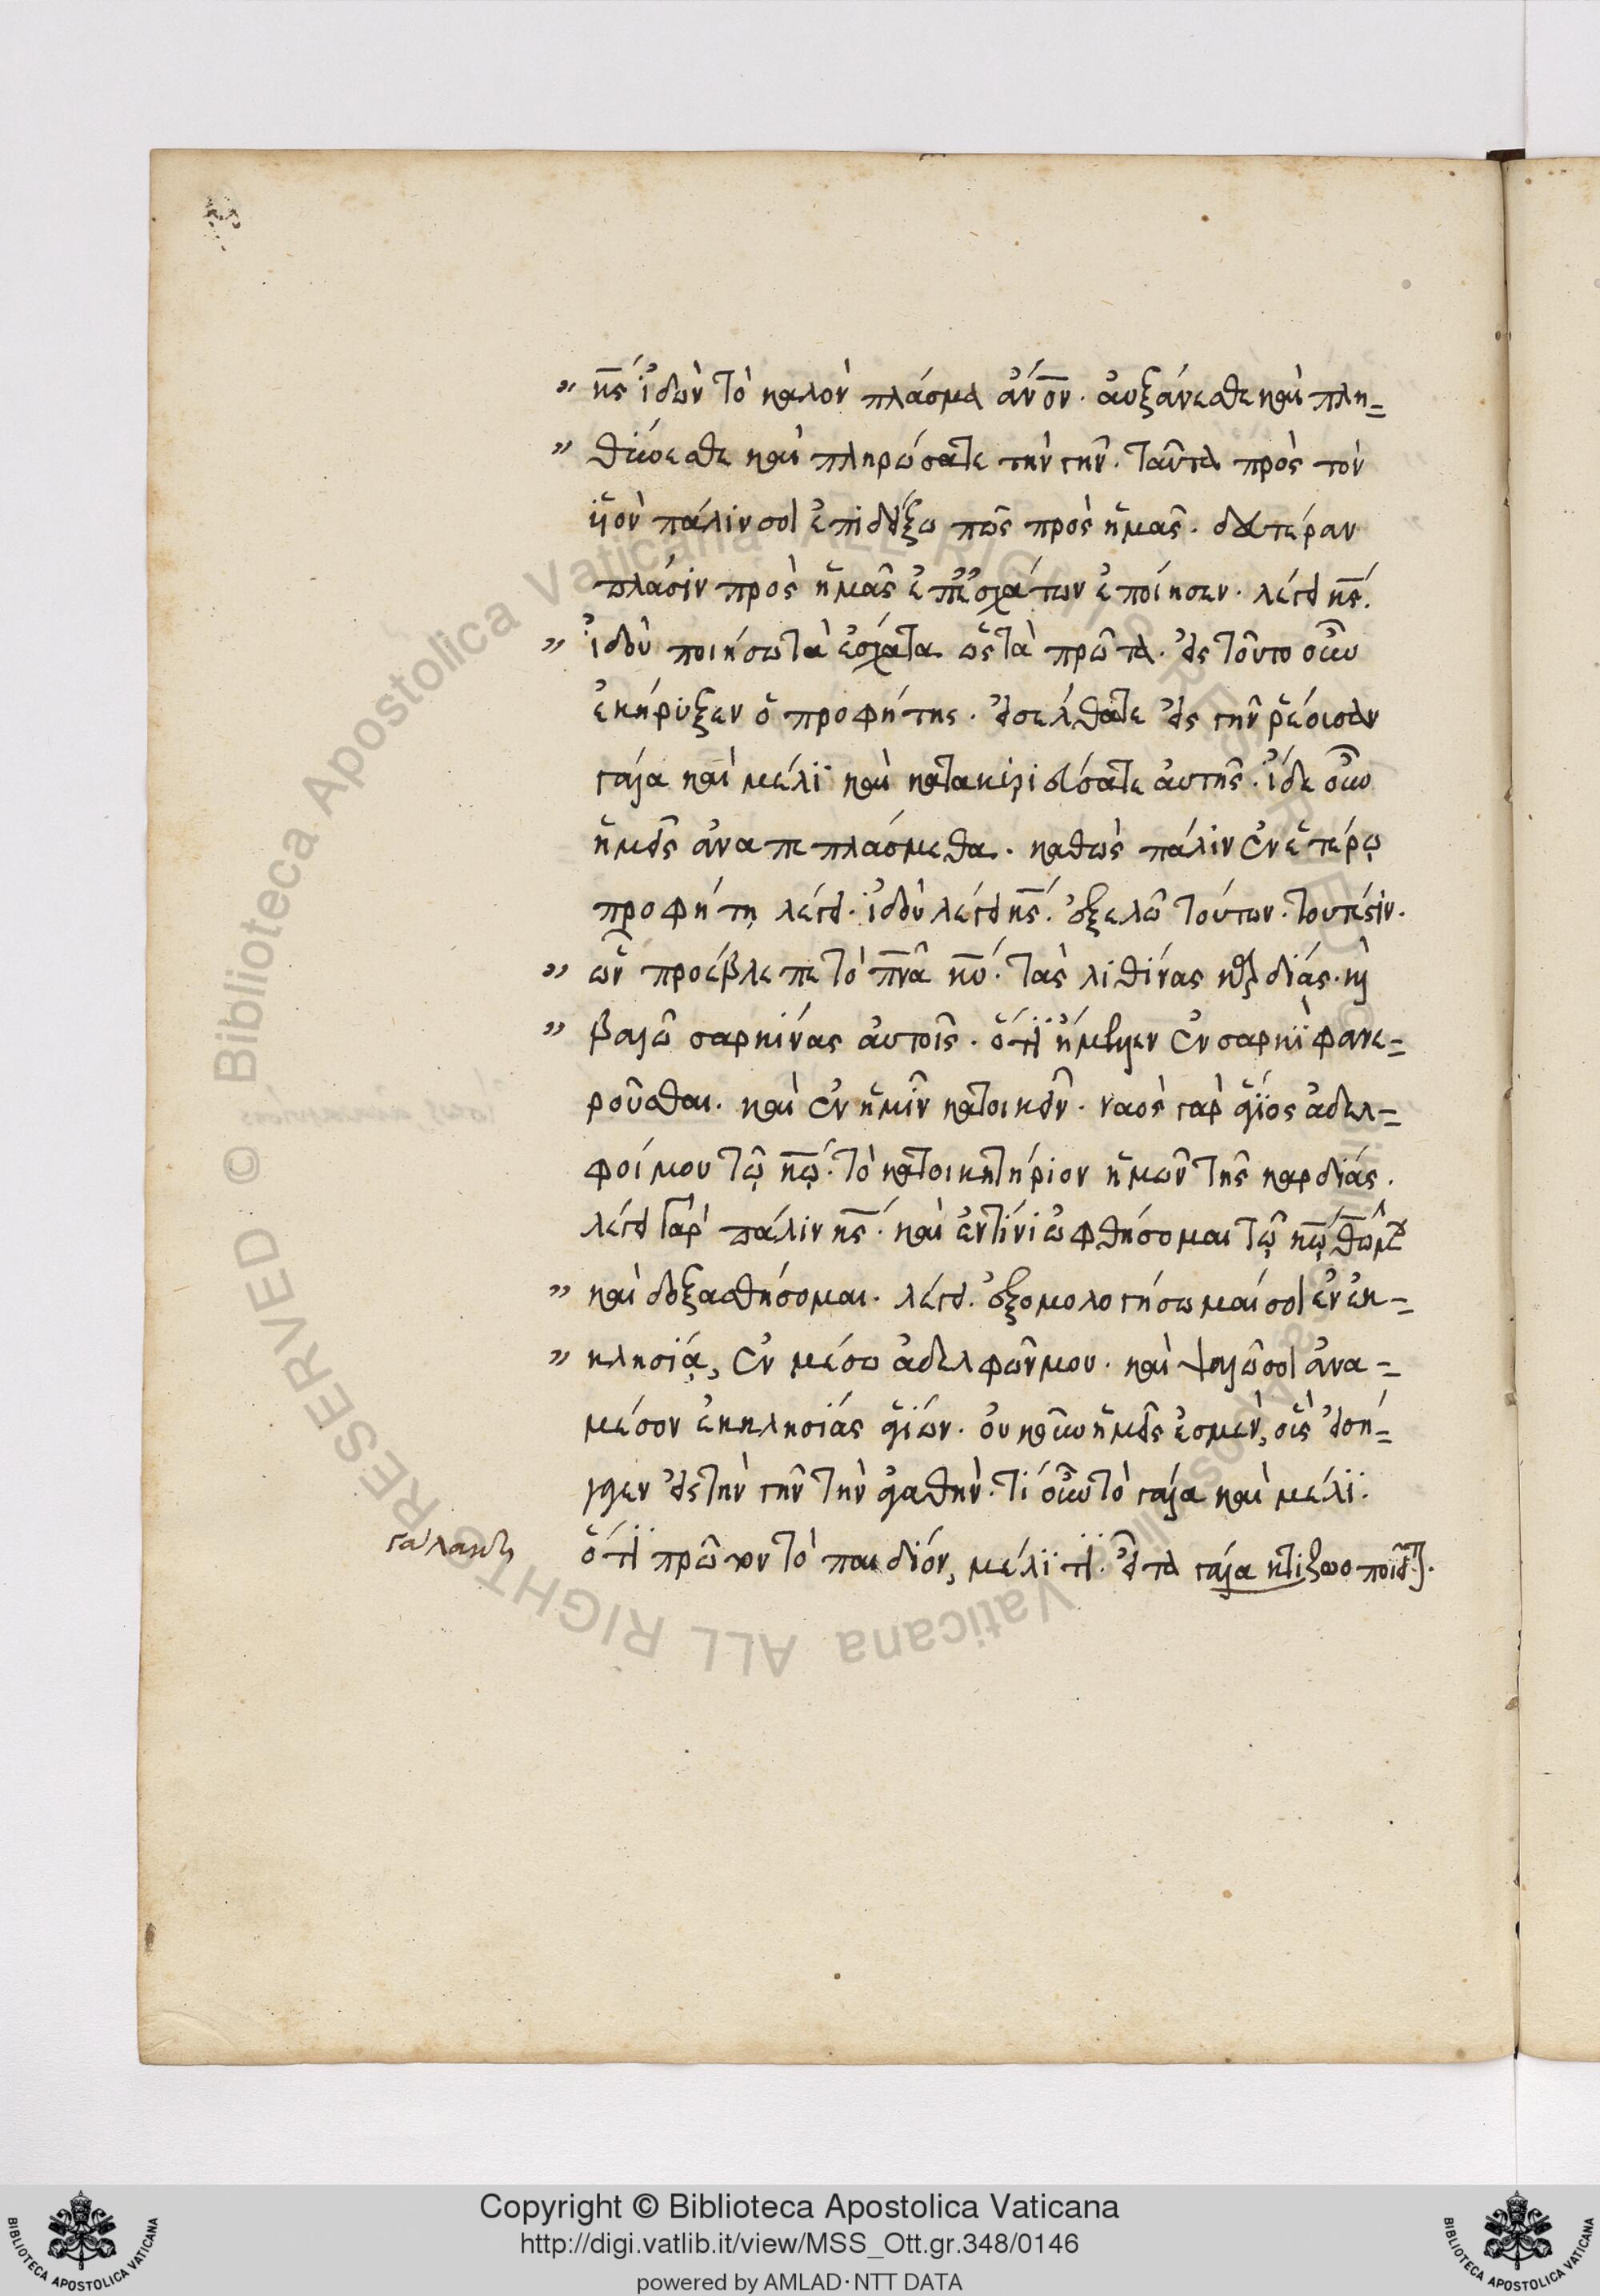 " κ̅ς̅ ἰδὼν τὸ καλὸν πλάσμα ἄν̅ο̅ν̅· ἀυξάνεσθε καὶ πλη=
" θύνεσθε καὶ πληρώσατε τὴν γῆν· ταῦτα πρὸς τὸν
υἱὸν πάλιν σοι ἐπιδείξω πῶς πρὸς ἡμᾶς· δευτέραν
πλάσιν πρὸς ἡμᾶς ἐπ' ἐσχάτων ἐποίησεν· λέγει κ̅ς̅·
" ἰδοὺ ποιήσω τὰ ἐσχατα ὡς τὰ πρῶτα· εἰς τοῦτο οὖν
ἐκήρυξεν ὁ προφήτης· εἰσέλθατε εἰς γῆν ῥέουσαν
γάλα καὶ μέλι καὶ κατακυριεύσατε ἀυτῆς· ἴδε οὖν
ἡμεῖς ἀναπεπλάσμεθα· καθὼς πάλιν ἐν ἑτέρῳ
προφήτῃ λέγει· ἰδοὺ λέγει κ̅ς̅· ἐξελῶ τούτων· τουτέστιν·
" ὧν προέβλεπε τὸ π̅ν̅α̅ κ̅υ̅· τὰς λιθίνας καρδίας· καὶ
" βαλῶ σαρκίνας ἀυτοῖς· ὅτι ἤμελλεν ἐν σαρκὶ φανε=
ροῦσθαι· καὶ ἐν ἡμῖν κατοικεῖν· ναὸς γὰρ ἅγιος ἀδελ=
φοί μου τῷ κ̅ῳ̅· τὸ κατοικητήριον ἡμῶν τῆς καρδίας·
λέγει γὰρ πάλιν κ̅ς̅· καὶ ἐν τίνι ὠφθήσομαι τῷ κ̅ῳ̅ θ̅ῷ̅ μου
" καὶ δοξασθήσομαι· λέγει· ἐξομολογήσωμαί σοι ἐν ἐκ=
" κλησίᾳ, ἐν μέσω ἀδελφῶν μου· καὶ ψαλῶ σοι ἀνα=
μέσον ἐκκλησίας ἁγίων· οὐκοῦν ἡμεῖς ἐσμεν, οἷς εἰσή=
γαγεν εἰς τὴν γῆν τὴν ἀγαθήν· τί οὖν τὸ γάλα καὶ μέλι·
ὅτι πρῶτον τὸ παιδίον, μέλιτι· εἶτα γάλα κτι ζωοποιεῖται·
γάλακτι
Copyright © Biblioteca Apostolica Vaticana
http://digi.vatlib.it/view/MSS_Ott.gr.348/0146
powered by AMLAD·NTT DATA